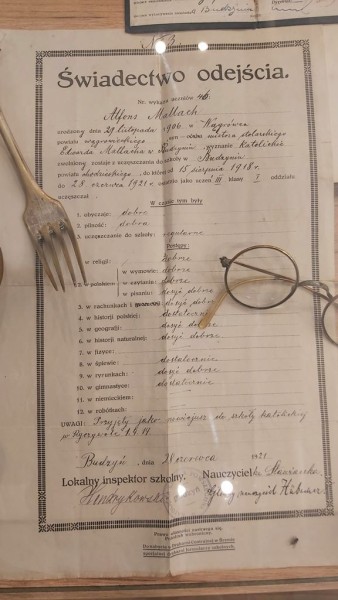 Budzyn
No 3
Świadectwo odejścia.
Nr. wykazu uczniów 46
Alfons Mallach
urodzony dnia 29 listopada 1906 w Wągrówcu
powiatu wągrowieckiego syn mistrza stolarskiego
Edwarda Mallacha w Budzyniu wyznanie katolickie
zwolniony zostaje z uczęszczania do szkoły w Budzyniu
powiatu chodzieskiego, do której od 15 sierpnia 1918 r.
do 28 czerwca 1921 ostatnio jako uczeń III klasy I oddziału
uczęszczał.
W czasie tym były
1. obyczaje: dobre
2. pilność: dobra
3. uczęszczanie do szkoły: regularne
Postępy:
w religji: dobrze
w wysłowie: dobrze
2. w polskiem: w czytaniu: dobrze
w pisaniu: dosyć dobrze
3. w rachunkach dosyć dobrze
4. w historji polskiej: dostatecznie
5. w geografji: dosyć dobrze
6. w historji naturalnej: dosyć dobrze
7. w fizyce:
8. w śpiewie: dostatecznie
9. w rysunkach: dosyć dobrze
10. w gimnastyce: dostatecznie
11. w niemieckiem:
12. w robótkach:
UWAGI: Przyjęty jako do szkoły katolickiej
w 1.4.19.
Budzyń, dnia 28 czerwca 1921
Lokalny inspektor szkolny. Nauczyciel